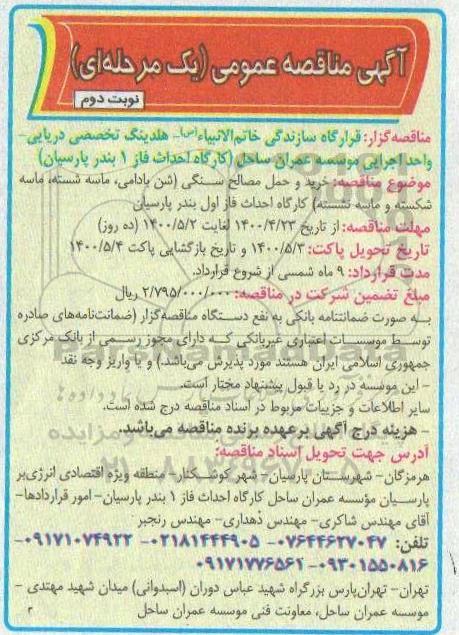 آگهی مناقصه عمومی (یک مرحله‌ای)
نوبت دوم
مناقصه‌گزار: قرارگاه سازندگی خاتم‌الانبیاء(ص)- هلدینگ تخصصی دریایی-
واحد اجرایی موسسه عمران ساحل (کارگاه احداث فاز ۱ بندر پارسیان)
موضوع مناقصه: خرید و حمل مصالح سنگی (شن بادامی، ماسه شسته، ماسه
شکسته و ماسه نشسته) کارگاه احداث فاز اول بندر پارسیان
مهلت مناقصه: از تاریخ ۱۴۰۰/۴/۲۳ لغایت ۱۴۰۰/۵/۲ (ده روز)
تاریخ تحویل پاکت: ۱۴۰۰/۵/۳ و تاریخ بازگشایی پاکت ۱۴۰۰/۵/۴
مدت قرارداد: ۹ ماه شمسی از شروع قرارداد.
مبلغ تضمین شرکت در مناقصه: ۲/۷۹۵/۰۰۰/۰۰۰ ریال
به صورت ضمانتنامه بانکی به نفع دستگاه مناقصه‌گزار (ضمانت‌نامه‌های صادره
توسط موسسات اعتباری غیربانکی که دارای مجوز رسمی از بانک مرکزی
جمهوری اسلامی ایران هستند مورد پذیرش می‌باشد.) و یا واریز وجه نقد
- این موسسه در رد یا قبول پیشنهاد مختار است.
سایر اطلاعات و جزییات مربوط در اسناد مناقصه درج شده است.
- هزینه درج آگهی برعهده برنده مناقصه می‌باشد.
آدرس جهت تحویل اسناد مناقصه:
هرمزگان- شهرستان پارسیان- شهر کوشکنار- منطقه ویژه اقتصادی انرژی‌بر
پارسیان مؤسسه عمران ساحل کارگاه احداث فاز ۱ بندر پارسیان- امور قراردادها-
آقای مهندس شاکری- مهندس دهداری- مهندس رنجبر
تلفن: ۰۷۶۴۴۶۲۷۰۴۷- ۰۲۱۸۱۴۴۴۹۰۵- ۰۹۱۷۱۰۷۴۹۲۲-
۰۹۳۰۱۵۵۰۸۱۶- ۰۹۱۷۱۷۷۶۵۶۱
تهران- تهران‌پارس بزرگراه شهید عباس دوران (اسبدوانی) میدان شهید مهتدی -
موسسه عمران ساحل، معاونت فنی موسسه عمران ساحل